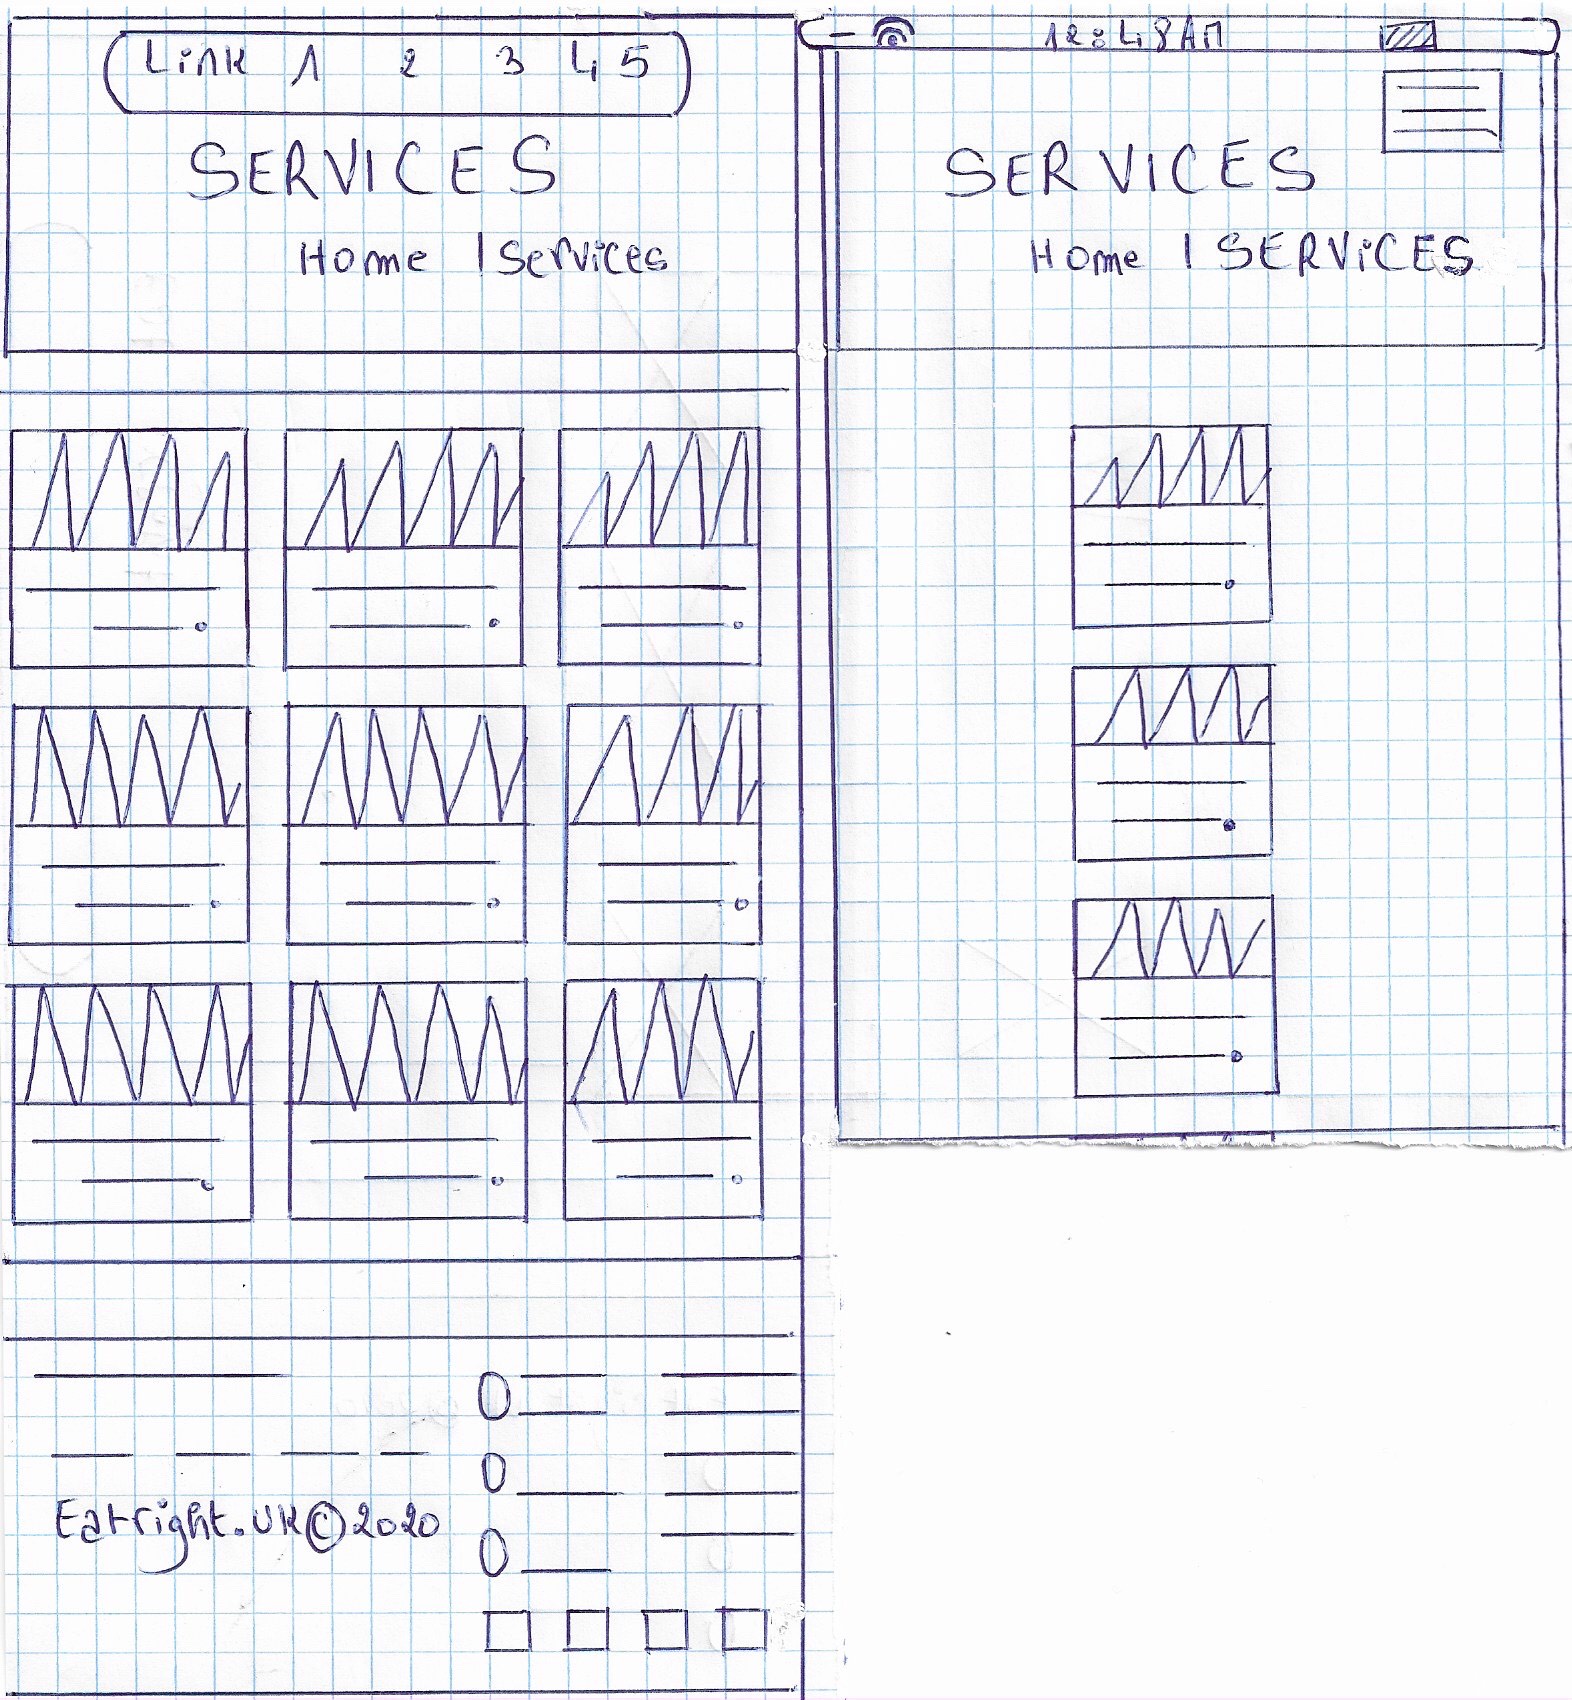 Link 1 2 3 4 5
SERVICES
Home | Services
Eatright.UK©2020
12:48AM
SERVICES
Home | SERViCES